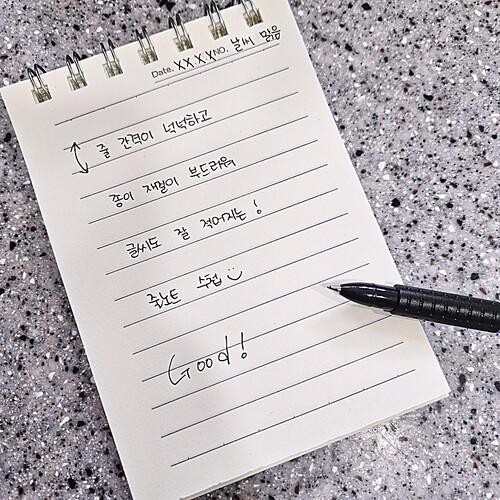 Date. XXXX NO. 날씨 맑음
줄 간격이 넉넉하고
종이 재질이 부드러워
글씨도 잘 적어지는!
줄노트 수첩
Good!